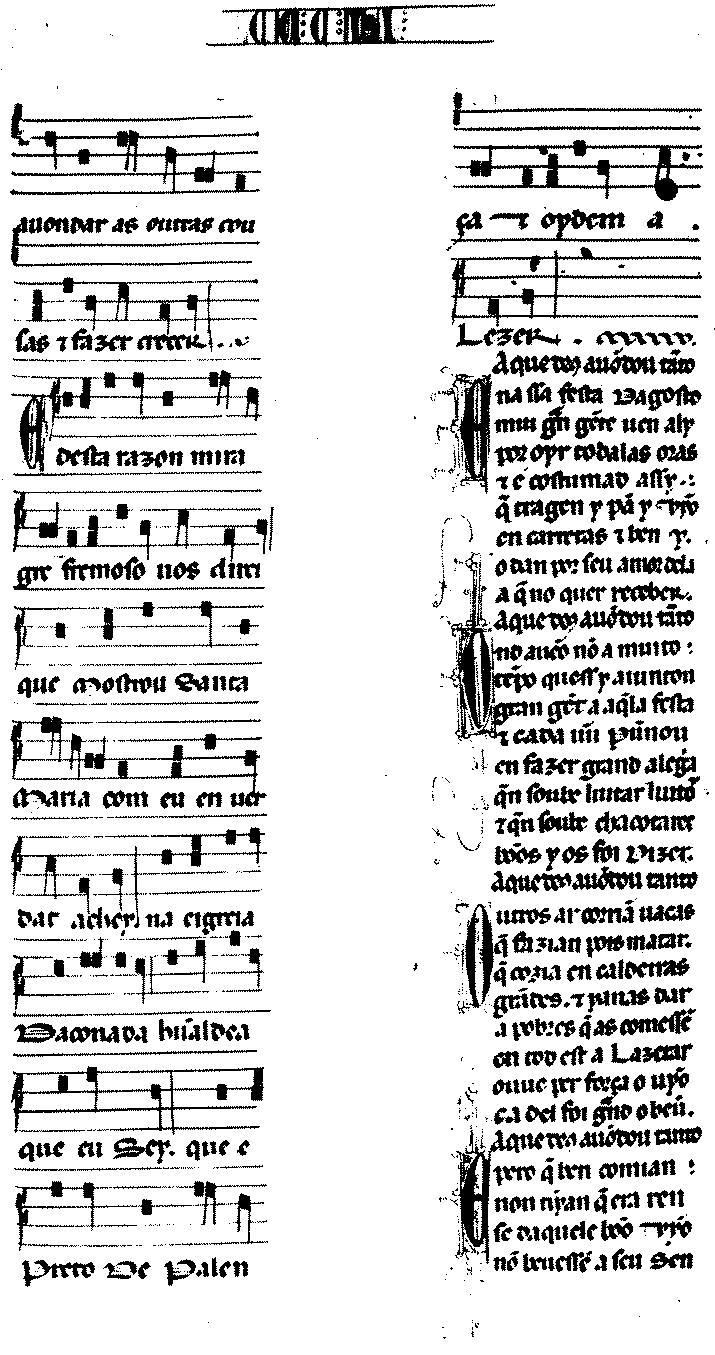 auondar as outras cou
sas ⁊ fazer crecer.
E desta razon mira
gre fremoso uos direi
que mostrou Santa
Maria com eu en uer
dar achey. na eigreia
Daconada hũaldea
que eu Sey. que e
Preto De Palen
ça ⁊ oydem a
Lezer.
Aqueo auõdou tãto
E na ssa festa Dagosto
mui grã gẽte uen aly
por oyr todalas oras
⁊ é costumad assy.:
q̃ tragen y pã y uỹo
en carretas ⁊ ben y.
o dan por seu amor dela
a q̃ no quer receber.
Aqueo auõdou tãto
nõ a muito :
tẽpo quess y aiuntou
gran gẽt a aq̃la festa
⁊ cada ũu punnou
en fazer grand alegria
q̃n soube luitar luitou
⁊ q̃n soube
bõos y os foi Dizer.
Aqueo auõdou tanto
Outros uacas
q̃ fazian pois matar.
q̃ cozian en caldeiras
grãdes. ⁊ panas dar
a pobres q̃ as comessẽ
en tod est a Lazerar
ouue per força o uỹo
ca del foi grãd o beu.
Aqueo auõdou tanto
E pero q̃ ben comian :
non nyan q̃ era ren
se daquele bõo uỹo
nõ beuessẽ a seu Sen